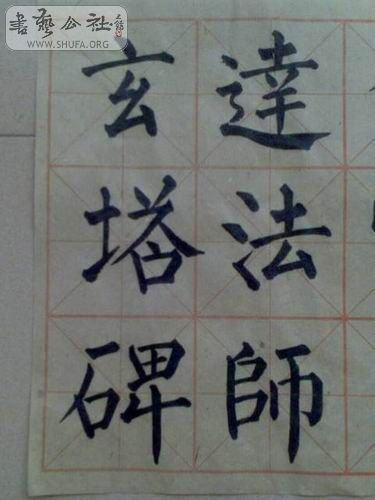 書藝公社
WWW.SHUFA.ORG
達法師
玄塔碑